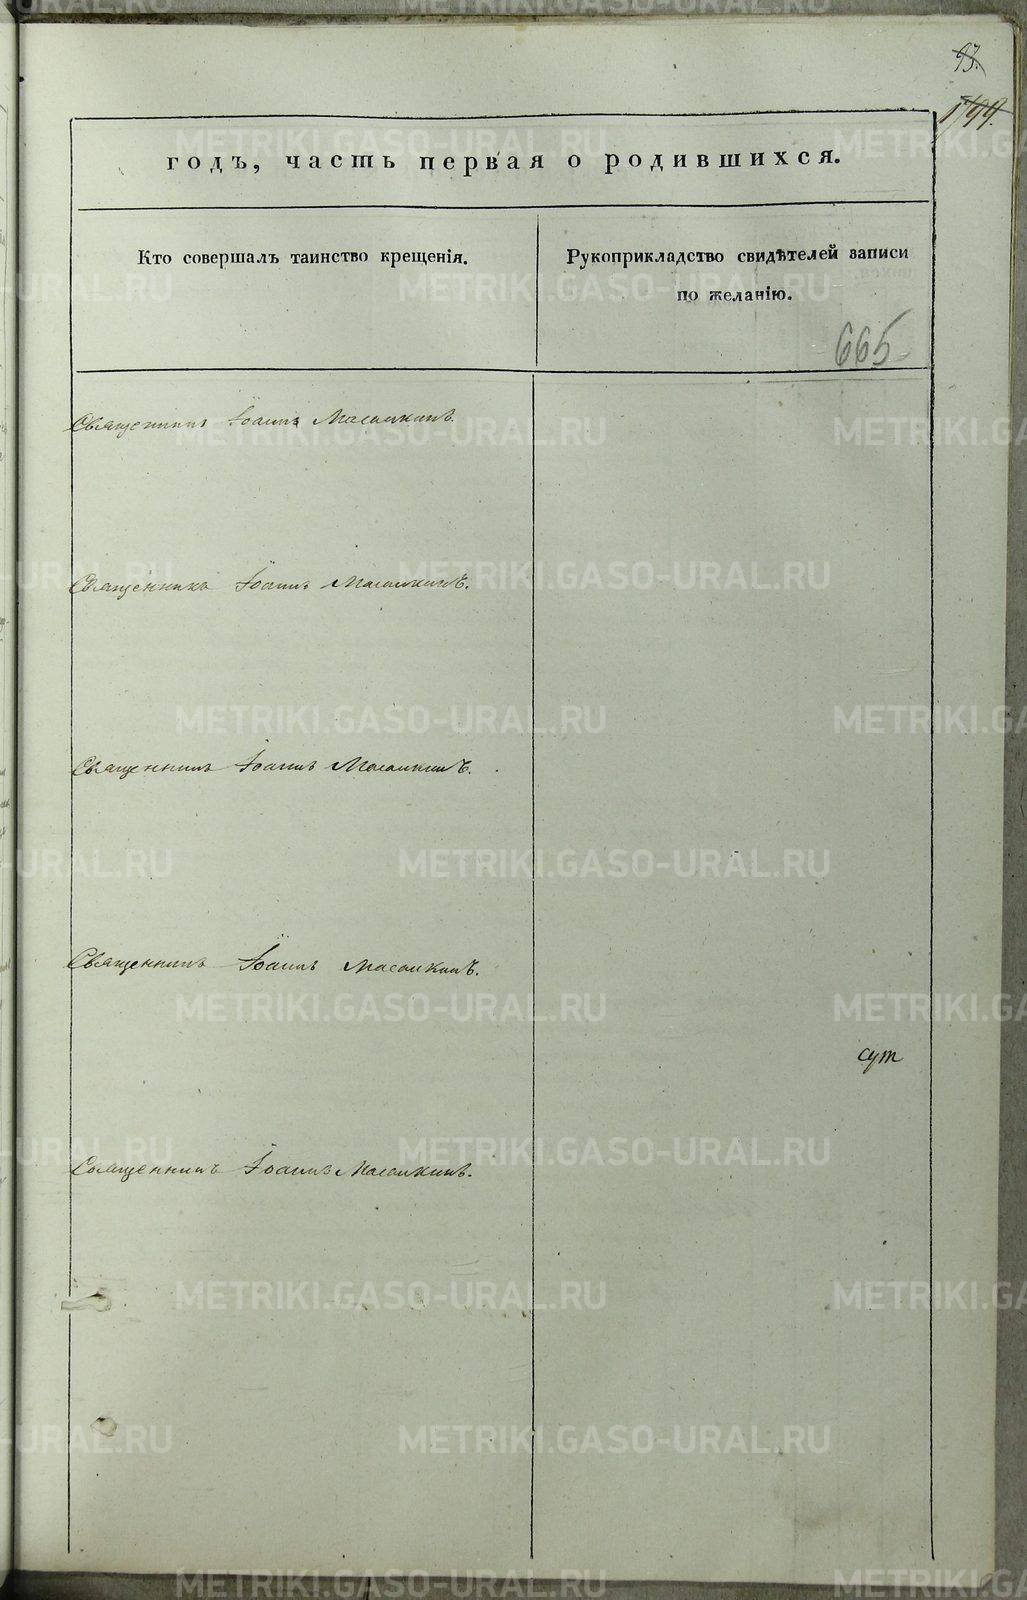 93.
1799.
годъ, часть первая о родившихся.
Кто совершалъ таинство крещенія.
Рукоприкладство свидѣтелей записи
по желанію.
665
Священникъ Іоаннъ Масалкинъ.
Священникъ Іоаннъ Масалкинъ.
Священникъ Іоаннъ Масалкинъ.
Священникъ Іоаннъ Масалкинъ.
сут
Священникъ Іоаннъ Масалкинъ.
METRIKI.GASO-URAL.RU